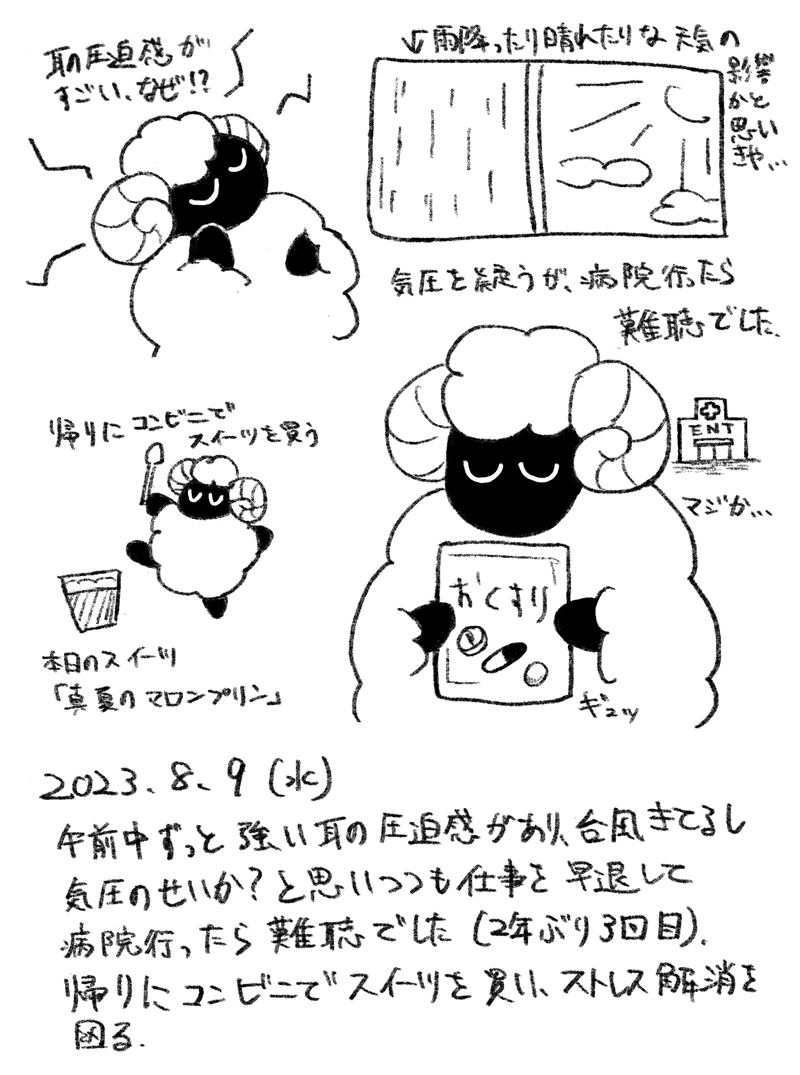 耳の圧迫感が
すごい、なぜ!?
↓雨降ったり晴れたりな天気の
影響
かと
思い
きや...
気圧を疑うが、病院行ったら
難聴でした。
ENT
マジか...
おくすり
ギュッ
帰りにコンビニで
スイーツを買う
本日のスイーツ
「真夏のマロンプリン」
2023.8.9(水)
午前中ずっと強い耳の圧迫感があり、台風きてるし
気圧のせいか?と思いつつも仕事を早退して
病院行ったら難聴でした(2年ぶり3回目)。
帰りにコンビニでスイーツを買い、ストレス解消を
図る.